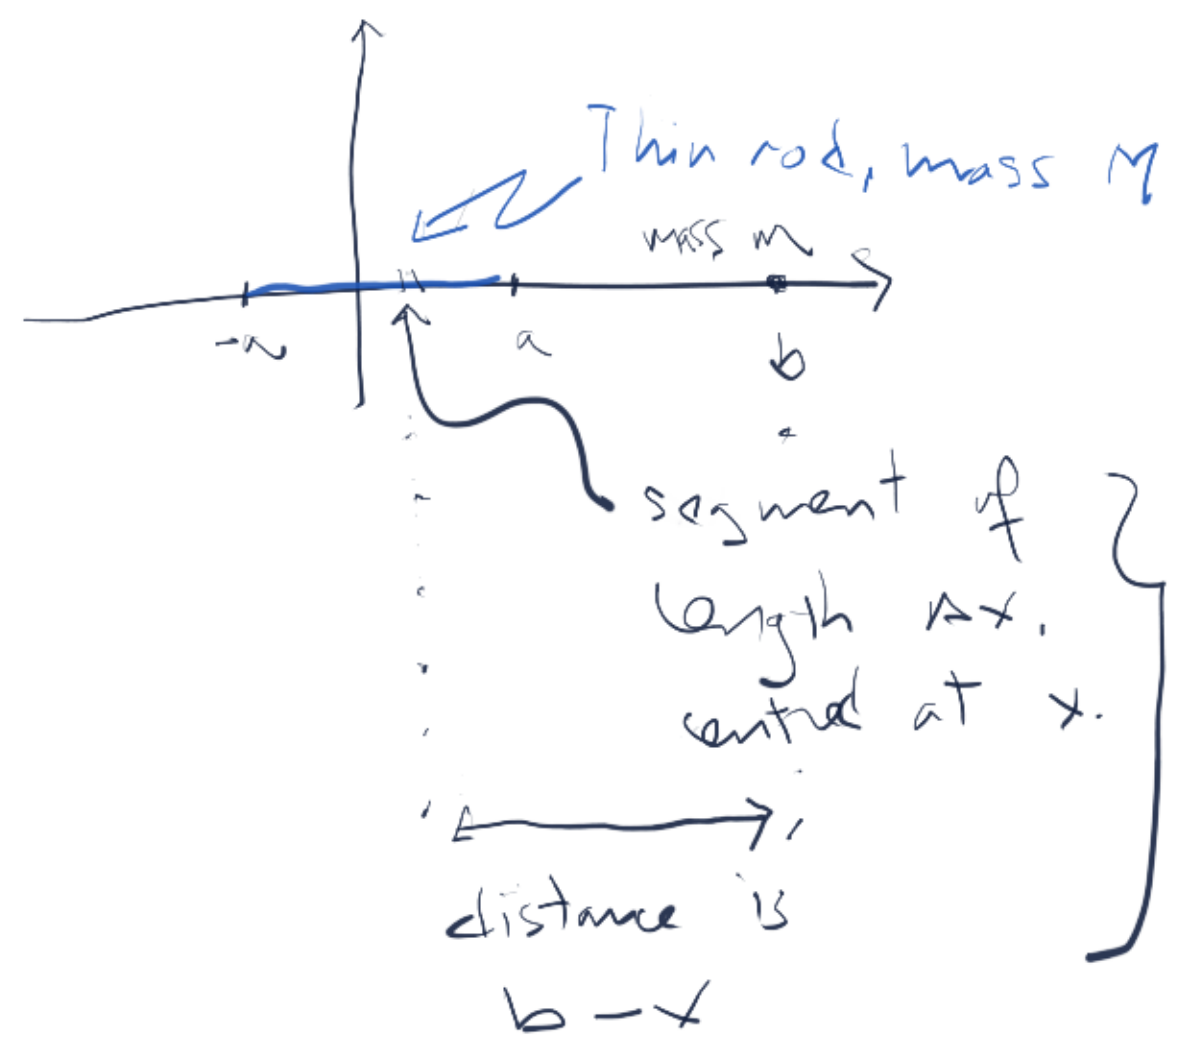 Thin rod, mass M
mass m
-a
a
b
segment of
length Δx.
centred at x.
distance is
b-x